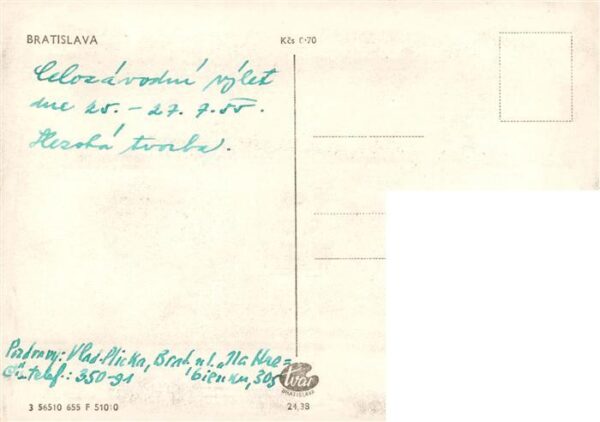 BRATISLAVA
Kčs 0·70
Celozávodní výlet
dne 25. – 27. 7. 55.
Hezká tvorba.
Pozdravy: Vlad. Plicka, Brat. ul. „Na Hre=
bienku, 305
telef.: 350-91
tvar
BRATISLAVA
3 56510 655 F 51010
24,38